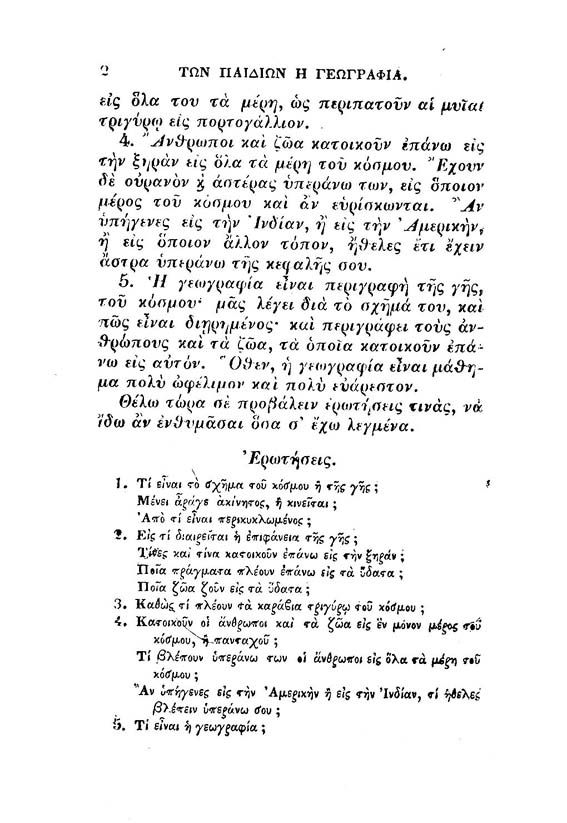 2 ΤΩΝ ΠΑΙΔΙΩΝ Η ΓΕΩΓΡΑΦΙΑ.
εἰς ὅλα του τὰ μέρη, ὡς περιπατοῦν αἱ μυῖαι
τριγύρῳ εἰς πορτογάλλιον.
4. Ἄνθρωποι καὶ ζῶα κατοικοῦν ἐπάνω εἰς
τὴν ξηρὰν εἰς ὅλα τὰ μέρη τοῦ κόσμου. Ἔχουν
δὲ οὐρανὸν ϗ ἀστέρας ὑπεράνω των, εἰς ὅποιον
μέρος τοῦ κόσμου καὶ ἂν εὑρίσκωνται. Ἂν
ὑπήγενες εἰς τὴν Ἰνδίαν, ἢ εἰς τὴν Ἀμερικὴν,
ἢ εἰς ὅποιον ἄλλον τόπον, ἤθελες ἔτι ἔχειν
ἄστρα ὑπεράνω τῆς κεφαλῆς σου.
5. Ἡ γεωγραφία εἶναι περιγραφὴ τῆς γῆς,
τοῦ κόσμου· μᾶς λέγει διὰ τὸ σχῆμά του, καὶ
πῶς εἶναι διῃρημένος· καὶ περιγράφει τοὺς ἀν-
θρώπους καὶ τὰ ζῶα, τὰ ὁποῖα κατοικοῦν ἐπά-
νω εἰς αὐτόν. Ὅθεν, ἡ γεωγραφία εἶναι μάθη-
μα πολὺ ὠφέλιμον καὶ πολὺ εὐάρεστον.
Θέλω τώρα σὲ προβάλειν ἐρωτήσεις τινὰς, νὰ
ἴδω ἂν ἐνθυμᾶσαι ὅσα σ' ἔχω λεγμένα.
Ἐρωτήσεις.
1. Τί εἶναι τὸ σχῆμα τοῦ κόσμου ἢ τῆς γῆς ;
Μένει ἆράγε ἀκίνητος, ἢ κινεῖται ;
Ἀπὸ τί εἶναι περικυκλωμένος ;
2. Εἰς τί διαιρεῖται ἡ ἐπιφάνεια τῆς γῆς ;
Τίνες καὶ τίνα κατοικοῦν ἐπάνω εἰς τὴν ξηράν ;
Ποῖα πράγματα πλέουν ἐπάνω εἰς τὰ ὕδατα ;
Ποῖα ζῶα ζοῦν εἰς τὰ ὕδατα ;
3. Καθὼς τί πλέουν τὰ καράβια τριγύρῳ τοῦ κόσμου ;
4. Κατοικοῦν οἱ ἄνθρωποι καὶ τὰ ζῶα εἰς ἓν μόνον μέρος τοῦ
κόσμου, ἢ πανταχοῦ ;
Τί βλέπουν ὑπεράνω των οἱ ἄνθρωποι εἰς ὅλα τὰ μέρη τοῦ
κόσμου ;
Ἂν ὑπήγενες εἰς τὴν Ἀμερικὴν ἢ εἰς τὴν Ἰνδίαν, τί ἤθελες
βλέπειν ὑπεράνω σου ;
5. Τί εἶναι ἡ γεωγραφία ;